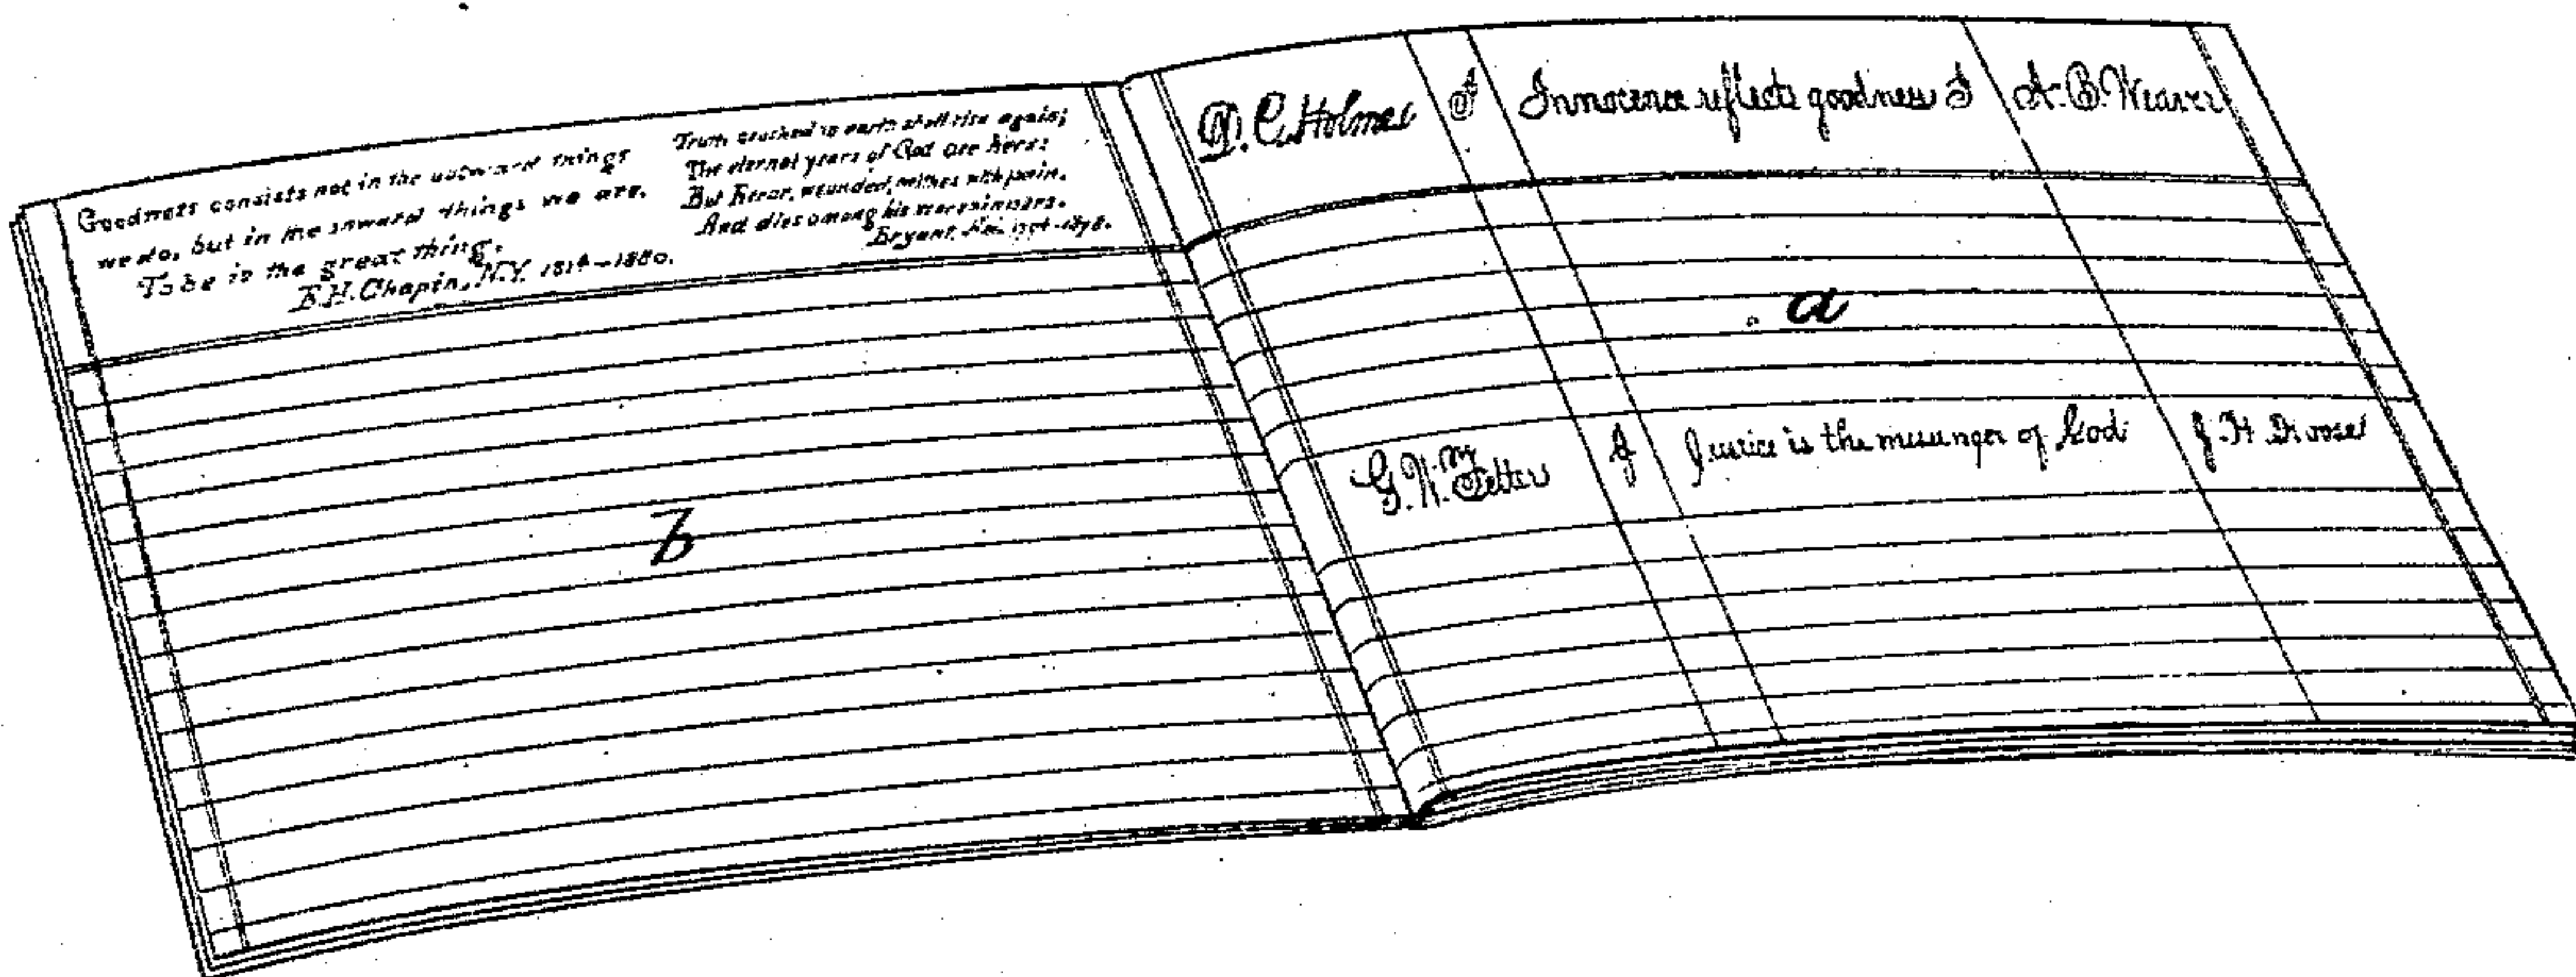 Goodness consists not in the outward things
we do, but in the inward things we are.
To be is the great thing.
E. H. Chapin, N.Y. 1814–1880.
Truth crushed to earth shall rise again;
The eternal years of God are hers:
But Error, wounded, writhes with pain,
And dies among his worshippers.
Bryant, 1878.
b
D. C. Holmes I Innocence reflects goodness I A. B. Weaver
a
G. W. Fetter J Justice is the messenger of God J. H.